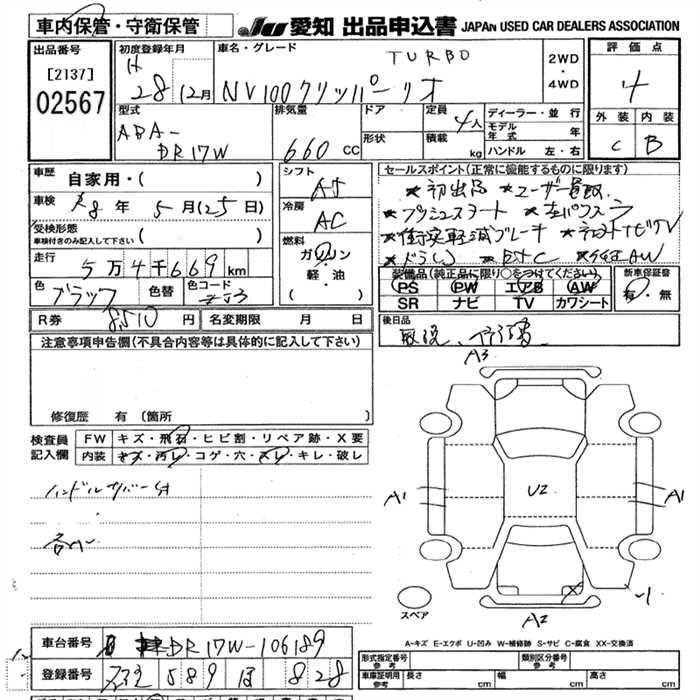 車内保管・守衛保管
JU 愛知 出品申込書 JAPAN USED CAR DEALERS ASSOCIATION
出品番号
[2137]
02567
初度登録年月
H
28 12月
車名・グレード
TURBO
NV100クリッパーリオ
2WD
・
4WD
評価点
4
外装 内装
C B
型式
ABA-
DR17W
排気量
660 CC
ドア
形状
定員
4人
積載
kg
ディーラー・並行
モデル年式 年
ハンドル 左・右
車歴 自家用・( )
車検 R8年 5月(25日)
受検形態
車検付きのみ記入して下さい ( )
走行 5万4千669km
色 ブラック 色替 色コード ZJ3
シフト
AT
冷房
AC
燃料
ガソリン
軽・油
( )
セールスポイント(正常に機能するものに限ります)
★初出品 ★ユーザー買取
★プッシュスタート ★左パワスラ
★衝突軽減ブレーキ ★社外ナビTV
★ドラレコ ★ETC ★純正AW
装備品(純正品に限り○をつけてください)
PS PW エアB AW
SR ナビ TV カワシート
新車保証書
有・無
R券 8510円 名変期限 月 日
後日品
取説、
注意事項申告欄(不具合内容等は具体的に記入して下さい)
修復歴 有(箇所 )
検査員
記入欄
FW キズ・飛石・ヒビ割・リペア跡・X要
内装 キズ・汚レ・コゲ・穴・スレ・キレ・破レ
A3
A1
U2
A1
X
A2
スペア
A-キズ E-エクボ U-凹み W-補修跡 S-サビ C-腐食 XX-交換済
車台番号 DR17W-106189
登録番号 589 828
形式指定番号
参考
類別区分番号
参考
車庫証明用
参考
長さ cm 幅 cm 高さ cm